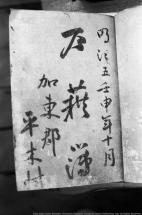 明治五壬申年十月
戸籍簿
加東郡
平木村